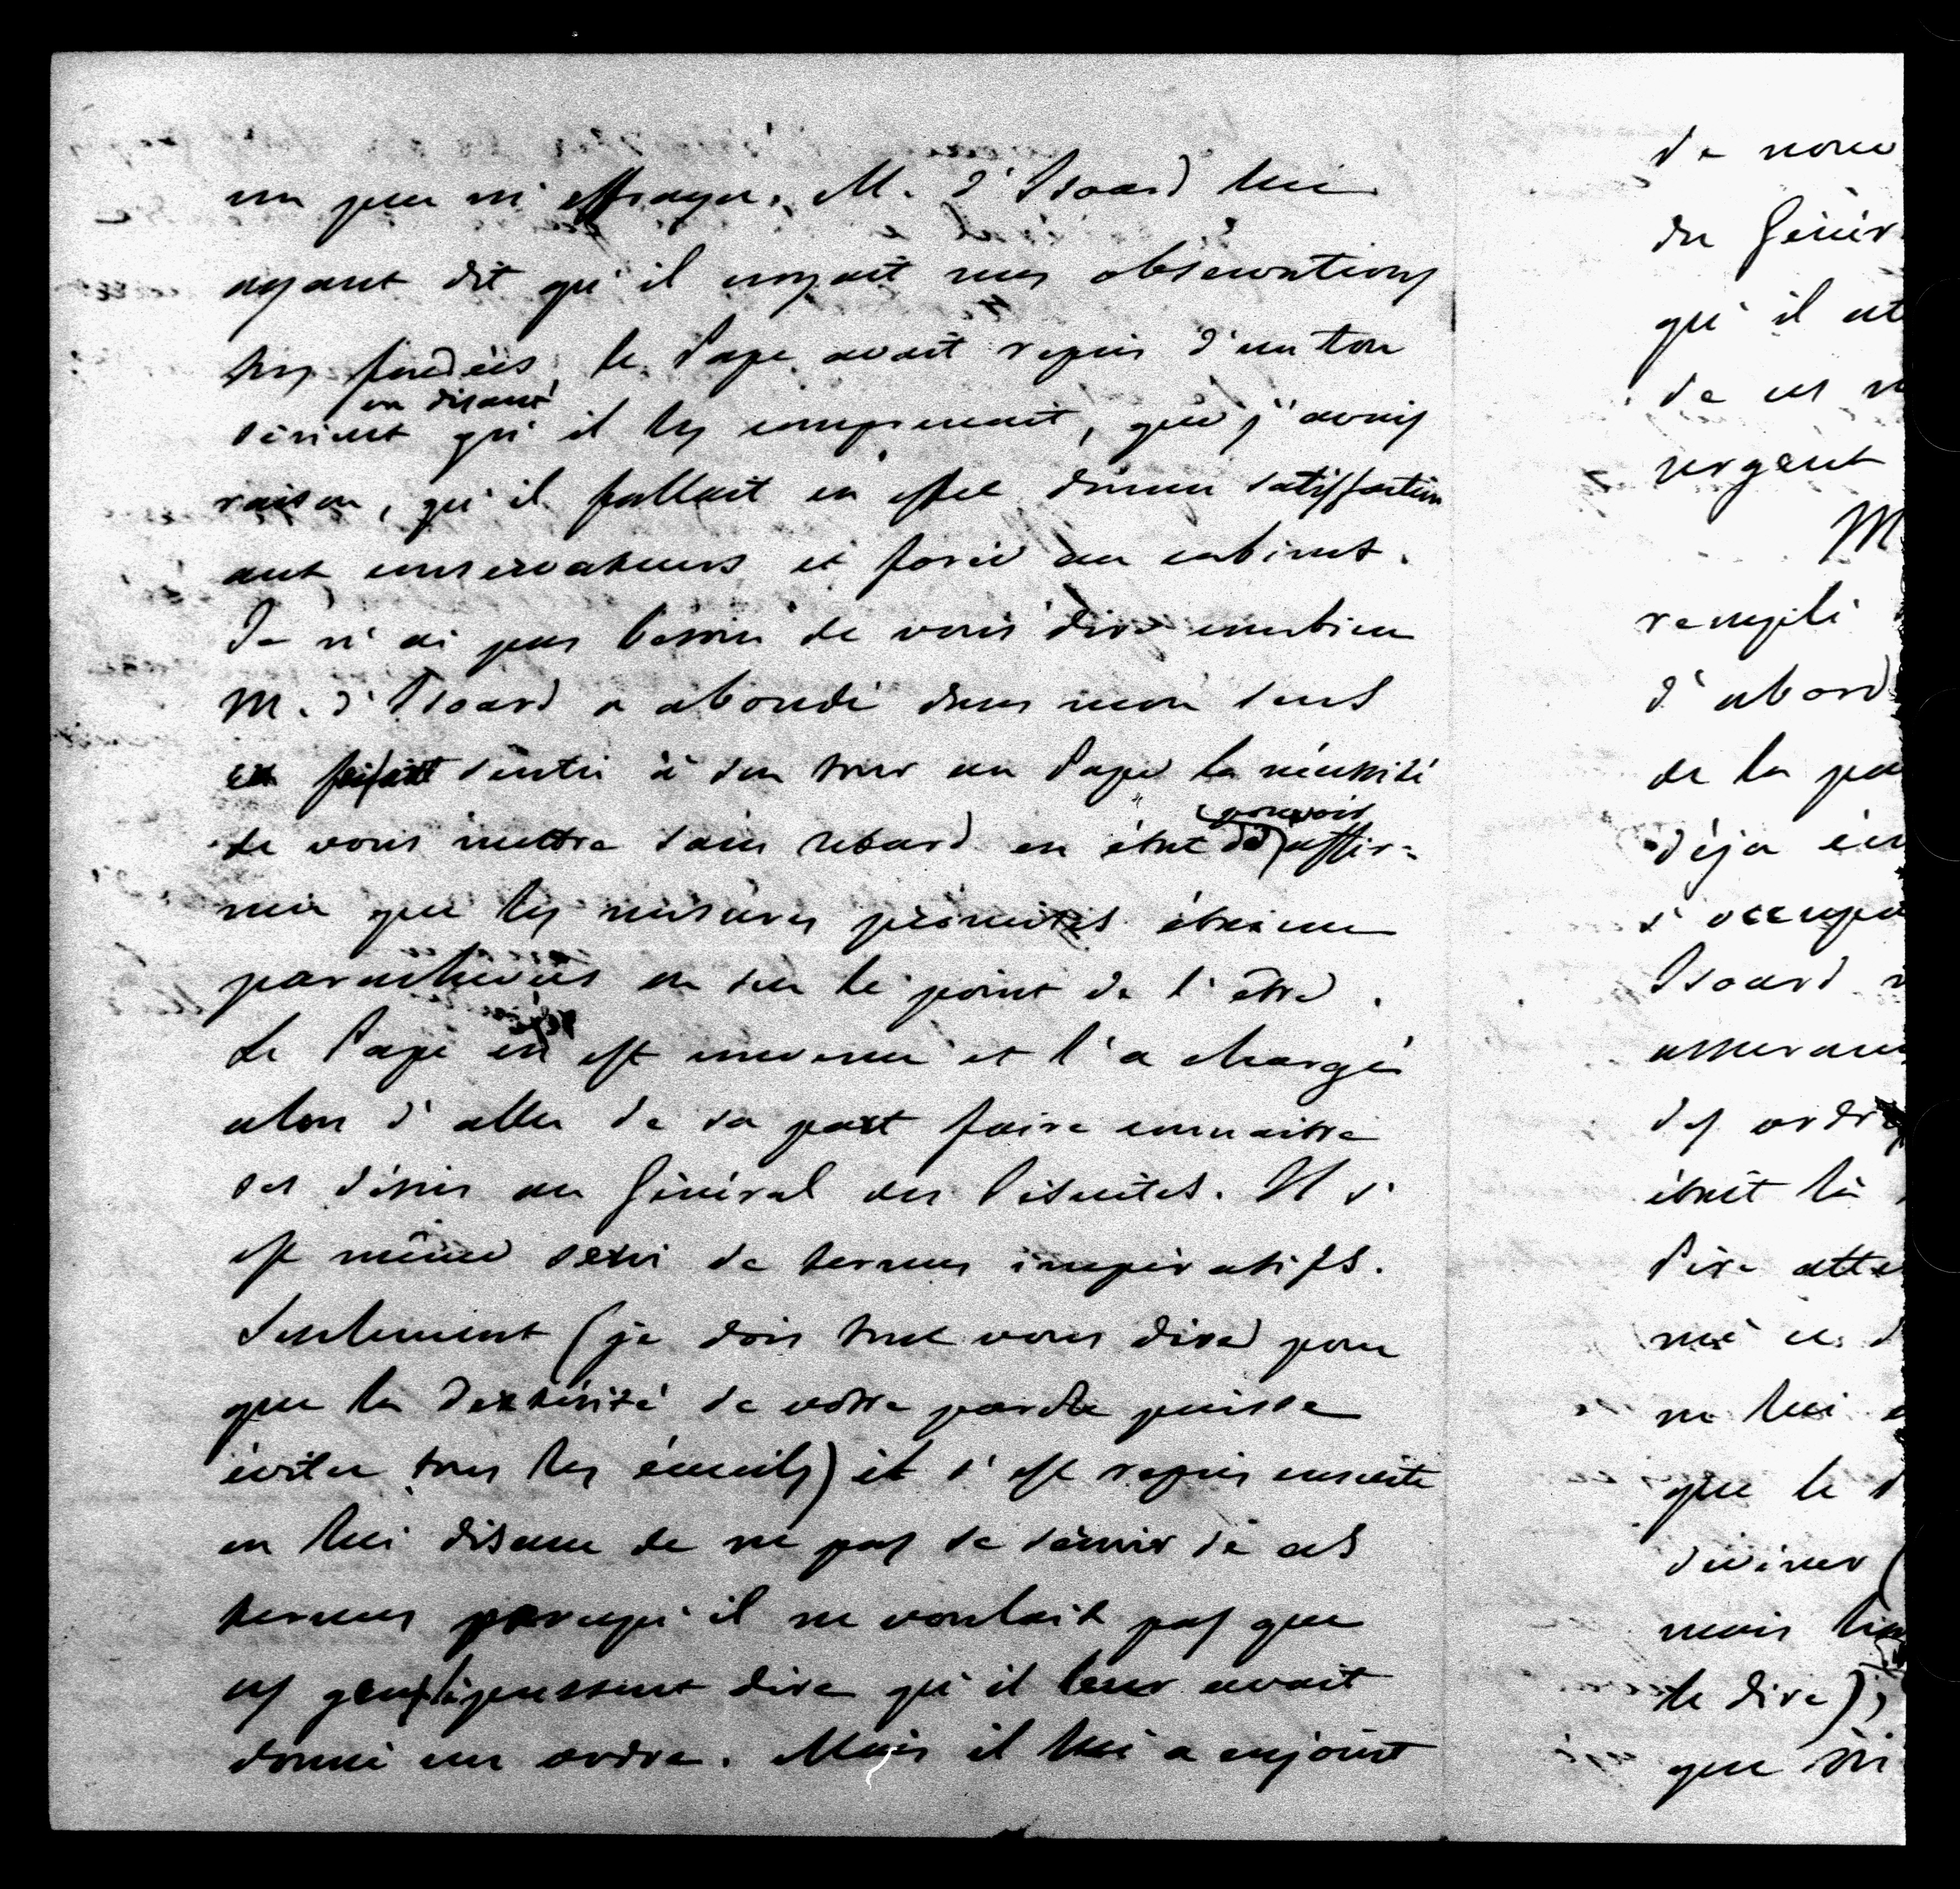 un peu m'effrayer. M. d'Isoard lui
ayant dit qu'il croyait mes observations
très fondées, le Pape avait repris d'un ton
en disant
sérieux qu'il les comprenait, que j'avais
raison, qu'il fallait en effet donner satisfaction
aux conservateurs et force au cabinet.
Je n'ai pas besoin de vous dire combien
M. d'Isoard a abondé dans mon sens
et fait sentir à son tour au Pape la nécessité
pouvoir
de vous mettre sans retard en état de affir-
mer que les mesures promises étaient
parachevées ou sur le point de l'être.
Le Pape en est convenu et l'a chargé
alors d'aller de sa part faire connaitre
ses désirs au Général des Jésuites. Il s'
est même servi de termes impératifs.
Seulement (je dois tout vous dire pour
que la dextérité de votre parole puisse
éviter tous les écueils) il s'est repris ensuite
en lui disant de ne pas se servir de ces
termes parcequ'il ne voulait pas que
ces gens là pussent dire qu'il leur avait
donné un ordre. Mais il lui a enjoint
de nouv
du Génér
qu'il at
de ces m
urgent
M
rempli
d'abord
de la pa
déjà en
s'occupe
Isoard
assuran
des ordre
était là
Père atte
me ce d
ne lui
que le
deviner (
mais
le dire);
que